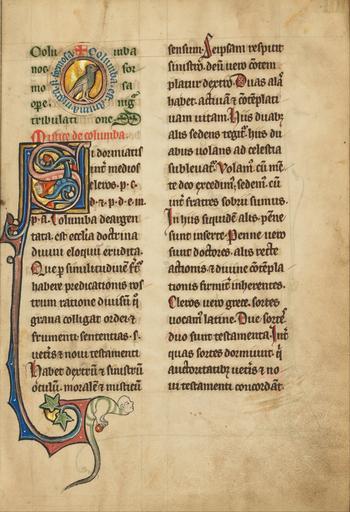 Colu mba
nos for
mo sa
ope nig̃
tribulatione.
Mistice de columba.
Si dormiatis
int̃ medios
cleros. p. c.
d. ⁊ p. d. e. in
p. a. Columba deargen
tata. est ecclia doctrina
diuini eloquii erudita.
Que p̱ similitudinẽ
habere predicationis ros
trum ratione diuisũ
grana colligat ordei ⁊
frumenti sententias. s.
uet̃is ⁊ noui testamenti
Habet dextrũ ⁊ sinistrũ
oculũ. moralẽ ⁊ misticũ
sensum. Seipsam respicit
sinistro. deũ uero cõtem
platur dextro. Duas alas
habet. actiuã ⁊ cõtẽplati
uam uitam. Hiis duabꝫ
aliis sedens tegit̃. hiis du
abus uolans ad celestia
subleuat̃. Volam. cũ mẽ
te deo excedim. sedem. cũ
int̃ fratres sobrii sumus.
In hiis siquidẽ aliis. pẽne
sunt inserte. Penne uero
sunt doctores. alis recte
actionis ⁊ diuine cõtẽpla
tionis firmit̃ inherentes.
Cleros uero grece. sortes
uocam latine. Due sortes
duo sunt testamenta. Int̃
quas sortes dormiunt. q̃
auctoritatibꝫ uet̃is ⁊ no
ui testamenti concordãt.